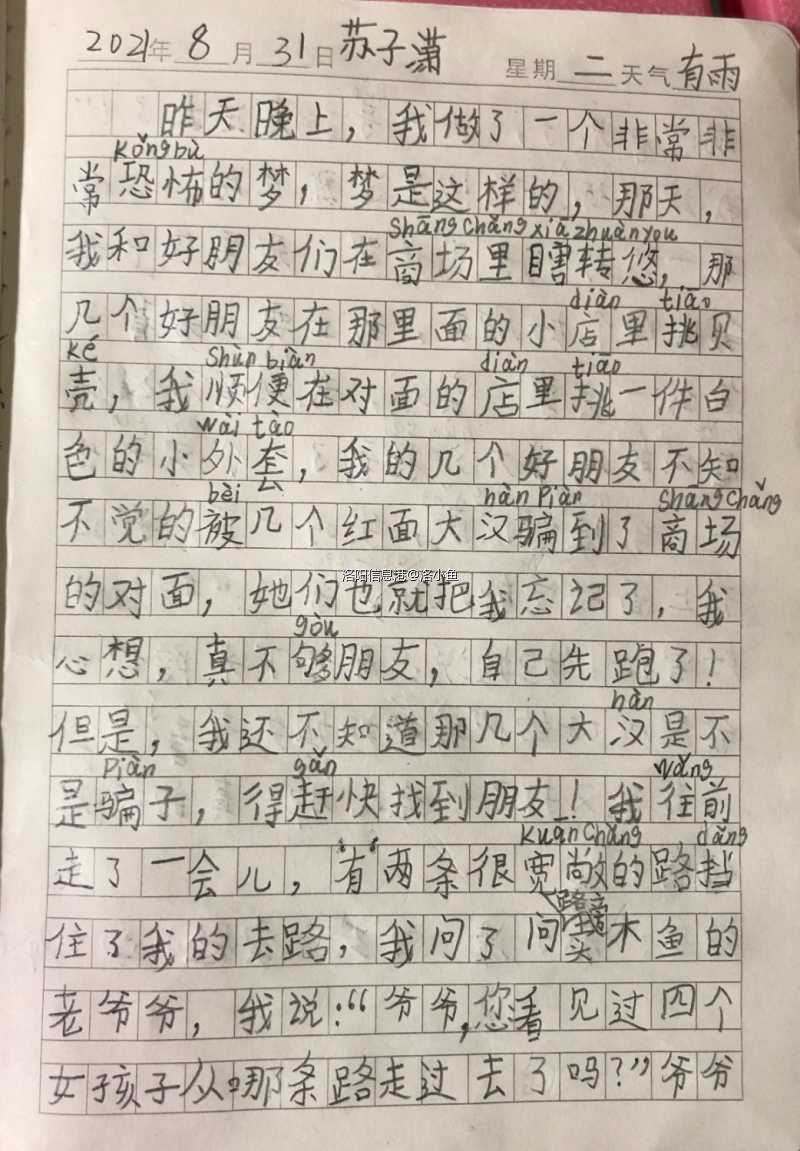 2021年8月31日苏子潇 星期二天气有雨
昨天晚上，我做了一个非常非
kǒng bù
常恐怖的梦，梦是这样的，那天，
shāng chǎng xiā zhuàn you
我和好朋友们在商场里瞎转悠，那
diàn tiāo
几个好朋友在那里面的小店里挑贝
ké shùn biàn diàn tiāo
壳，我顺便在对面的店里挑一件白
wài tào
色的小外套，我的几个好朋友不知
bèi hàn piàn shāng chǎng
不觉的被几个红面大汉骗到了商场
的对面，她们也就把我忘记了，我
洛阳信息港@洛小鱼
gòu
心想，真不够朋友，自己先跑了！
hàn
但是，我还不知道那几个大汉是不
piàn gǎn wǎng
是骗子，得赶快找到朋友！我往前
kuān chǎng dǎng
走了一会儿，有两条很宽敞的路挡
住了我的去路，我问了问路旁敲木鱼的
老爷爷，我说：“爷爷，您看见过四个
女孩子从哪条路走过去了吗？”爷爷